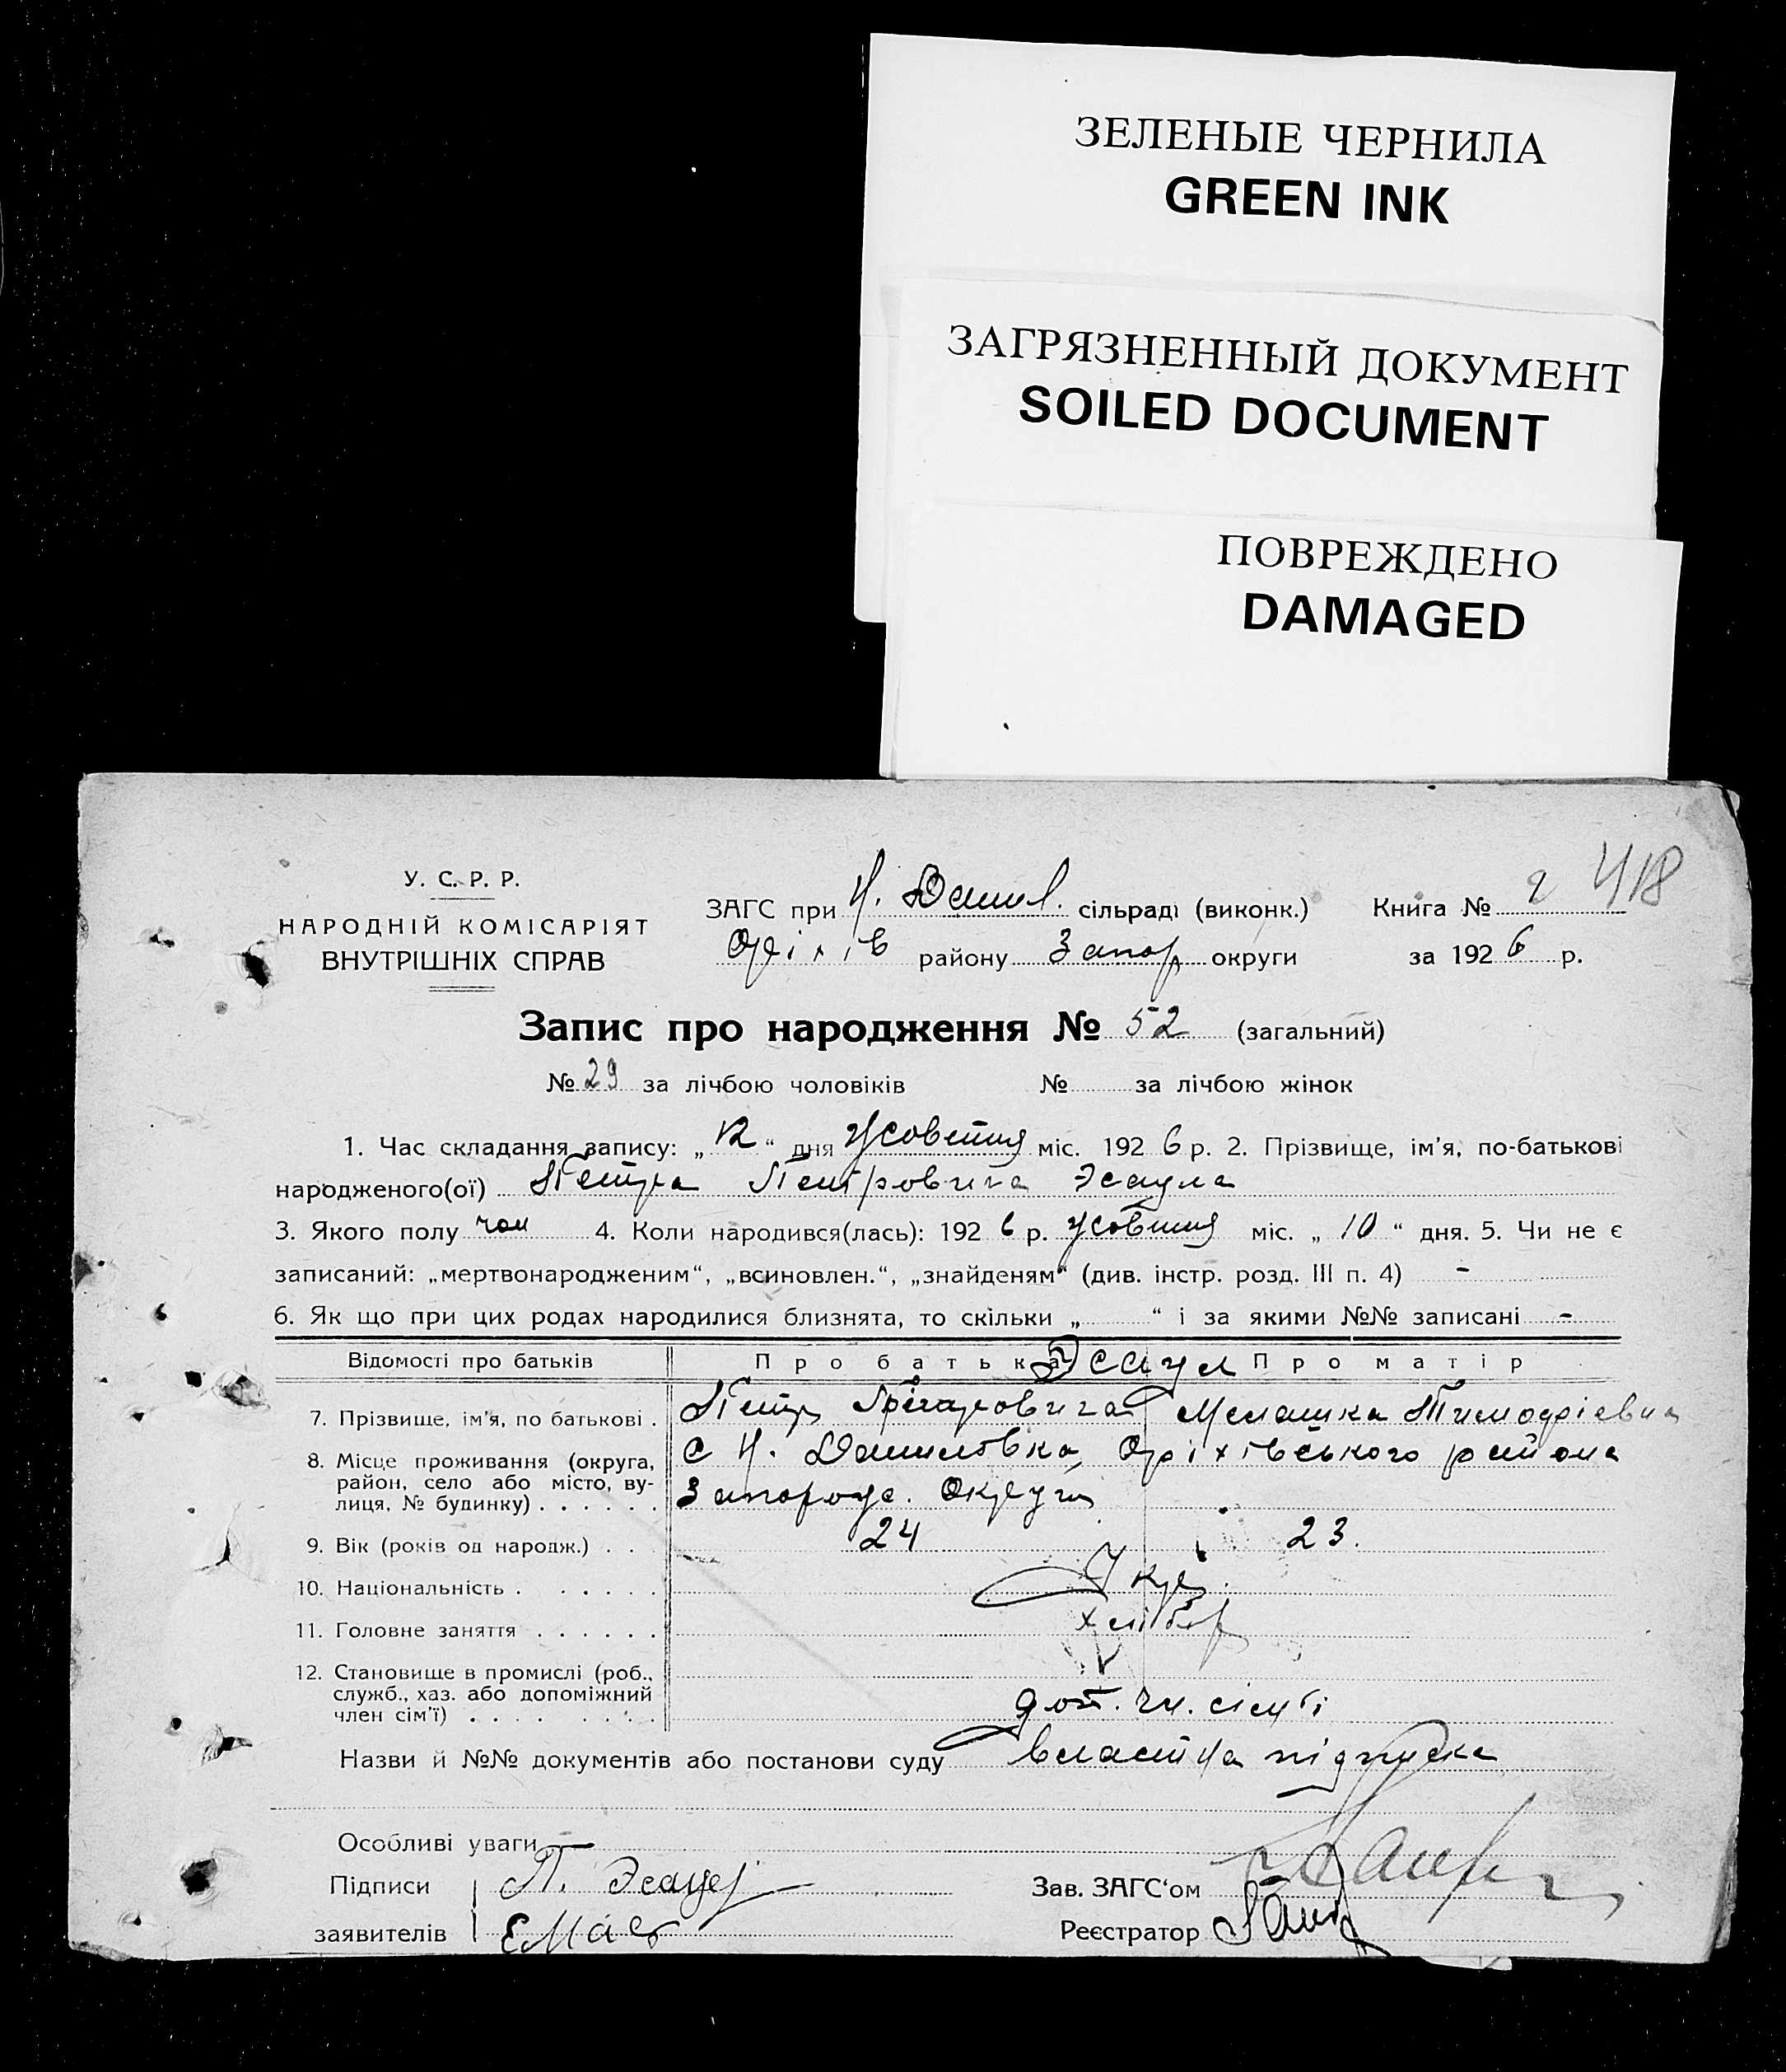 ЗЕЛЕНЫЕ ЧЕРНИЛА
GREEN INK
ЗАГРЯЗНЕННЫЙ ДОКУМЕНТ
SOILED DOCUMENT
ПОВРЕЖДЕНО
DAMAGED
У. С. Р. Р.
НАРОДНІЙ КОМІСАРІЯТ
ВНУТРІШНІХ СПРАВ
418
ЗАГС при Н. Данил. сільраді (виконк.) Книга № 2
Оріхів району Запор округи за 1926 р.
Запис про народження № 52 (загальний)
№ 29 за лічбою чоловіків № за лічбою жінок
1. Час складання запису: „12“ дня Жовтня міс. 1926 р. 2. Прізвище, ім'я, по-батькові
народженого(ої) Петра Петровича Эсаула
3. Якого полу чол 4. Коли народився(лась): 1926 р. Жовтня міс. „10“ дня. 5. Чи не є
записаний: „мертвонародженим“, „всиновлен.“, „знайденям“ (див. інстр. розд. III п. 4) -
6. Як що при цих родах народилися близнята, то скільки „ “ і за якими №№ записані -
Відомості про батьків Про батька Эсаул Про матір
7. Прізвище, ім'я, по батькові . Петр Мелашка Тимофієвна
8. Місце проживання (округа, с Н. Даниловка, Оріхівського района
район, село або місто, ву-
лиця, № будинку) . . . . . . Запорож. Округи
9. Вік (років од народж.) . . 24 23.
10. Національність . . . . . . Укр.
11. Головне заняття . . . . . . хлібор
12. Становище в промислі (роб.,
служб., хаз. або допоміжний
член сім'ї) . . . . . . . доп. чл. сімї
Назви й №№ документів або постанови суду власна підписка
Особливі уваги —
Підписи П. Эсаул Зав. ЗАГС‘ом
заявителів Реєстратор